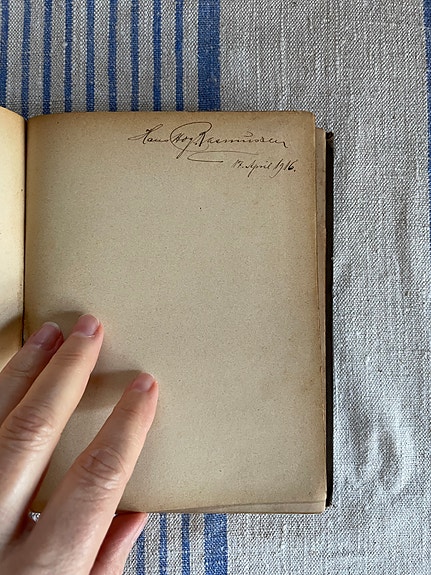 Hans Høg Rasmussen
17. April 1916.